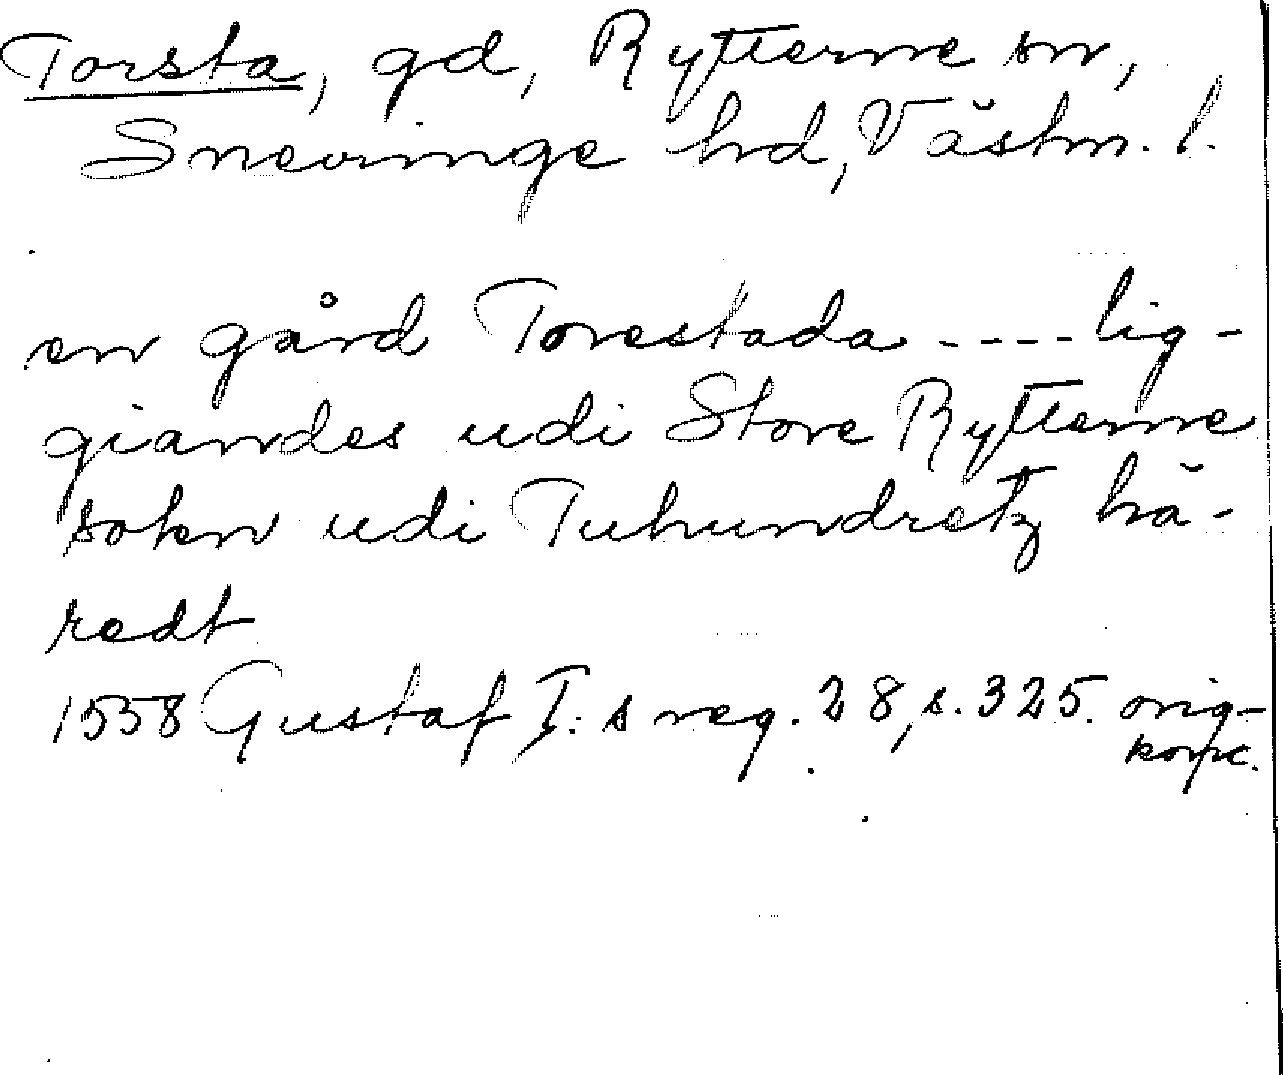 Torsta, gd, Rytterne sn,
Snevringe hd, Västm. l.
en gård Torestada ---- lig-
giandes udi Store Rytterne
sokn udi Tuhundretz hä-
redt
1558 Gustaf I:s reg. 28, s. 325. orig-
konc.